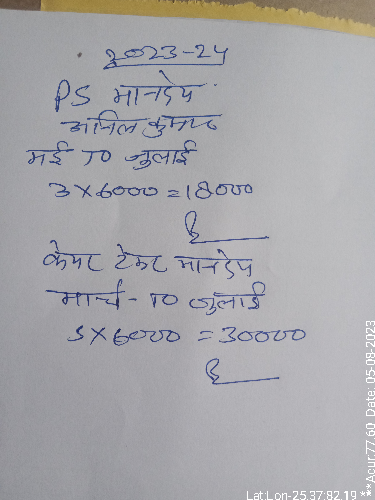 2023-24
PS मानदेय
अनिल कुमार
मई TO जुलाई
3×6000=18000
केयर टेकर मानदेय
मार्च - TO जुलाई
5×6000=30000
Lat:Lon-25.37:82.19 ***Acur:77.60 Date: 05-08-2023